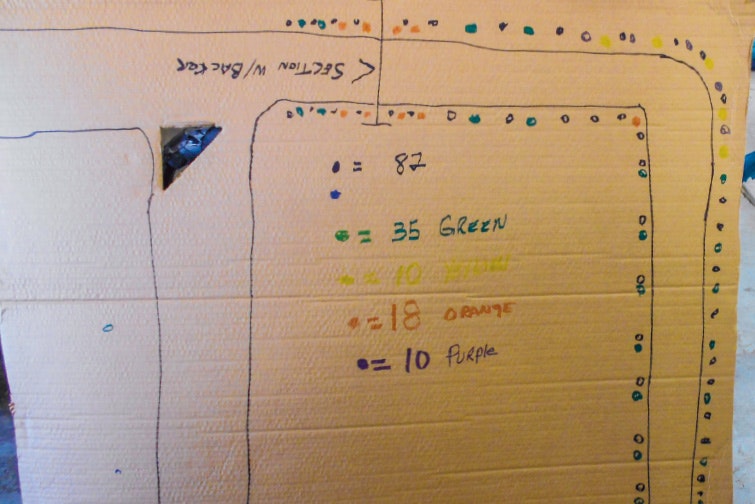 < SECTION W/BACKER
= 82
= 35 GREEN
= 10 YELLOW
= 18 ORANGE
= 10 PURPle